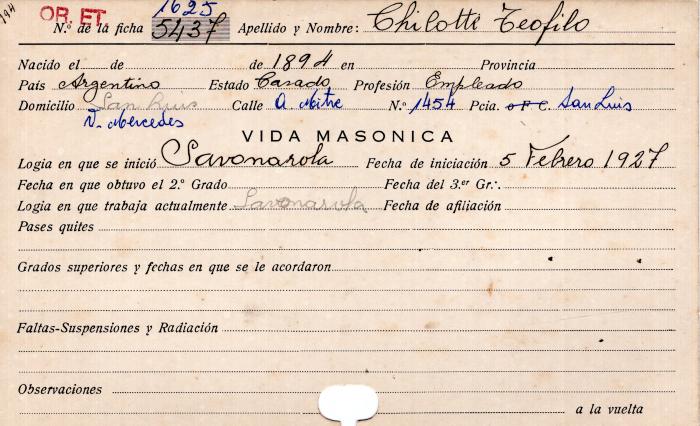 194 OR. ET. 1625
N.º de la ficha 5437 Apellido y Nombre: Chilotte Teofilo
Nacido el de de 1894 en Provincia
País Argentino Estado Casado Profesión Empleado
Domicilio San Luis Calle A. Mitre N.º 1454 Pcia. o F. C. San Luis
V. Mercedes
VIDA MASONICA
Logia en que se inició Savonarola Fecha de iniciación 5 Febrero 1927
Fecha en que obtuvo el 2.º Grado Fecha del 3.er Gr∴
Logia en que trabaja actualmente Savonarola Fecha de afiliación
Pases quites
Grados superiores y fechas en que se le acordaron
Faltas-Suspensiones y Radiación
Observaciones
a la vuelta